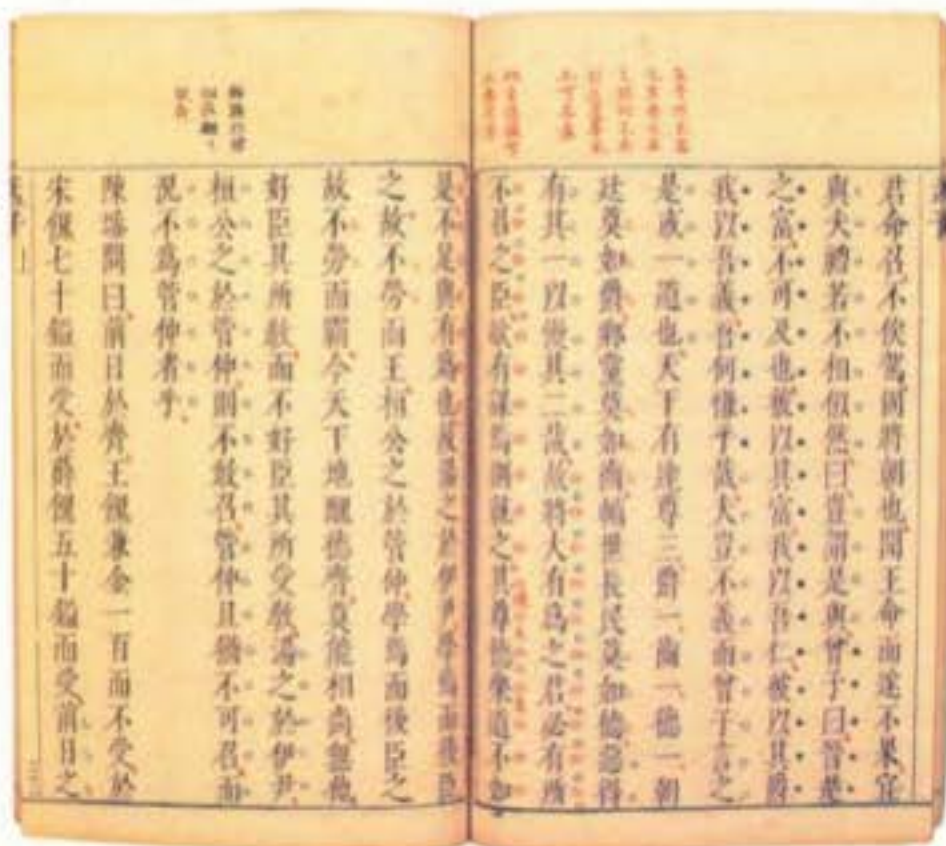 君命召、不俟駕、固將朝也、聞王命而遂不果、宜
與夫禮若不相似然、曰、豈謂是與、曾子曰、晉楚
之富、不可及也、彼以其富、我以吾仁、彼以其爵
我以吾義、吾何慊乎哉、夫豈不義而曾子言之
是或一道也、天下有達尊三、爵一、齒一、德一、朝
廷莫如爵、鄉黨莫如齒、輔世長民莫如德、惡得
有其一以慢其二哉、故將大有為之君、必有所
不召之臣、欲有謀焉則就之、其尊德樂道不如
是、不足與有為也、故湯之於伊尹、學焉而後臣
之、故不勞而王、桓公之於管仲、學焉而後臣之
故不勞而霸、今天下地醜德齊、莫能相尚、無他、
好臣其所教、而不好臣其所受教、湯之於伊尹、
桓公之於管仲、則不敢召、管仲且猶不可召、而
況不為管仲者乎、
陳臻問曰、前日於齊、王餽兼金一百而不受、於
宋餽七十鎰而受、於薛餽五十鎰而受、前日之